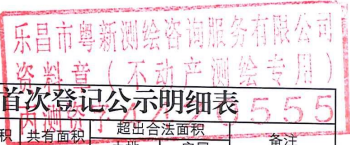 乐昌市粤新测绘咨询服务有限公司
资料章（不动产测绘专用）
首次登记公示明细表
内测资字
0555
积 共有面积 超出合法面积 备注